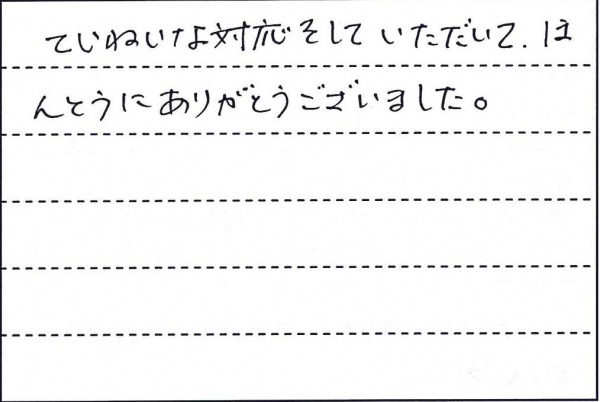 ていねいな対応そしていただいて、ほ
んとうにありがとうございました。